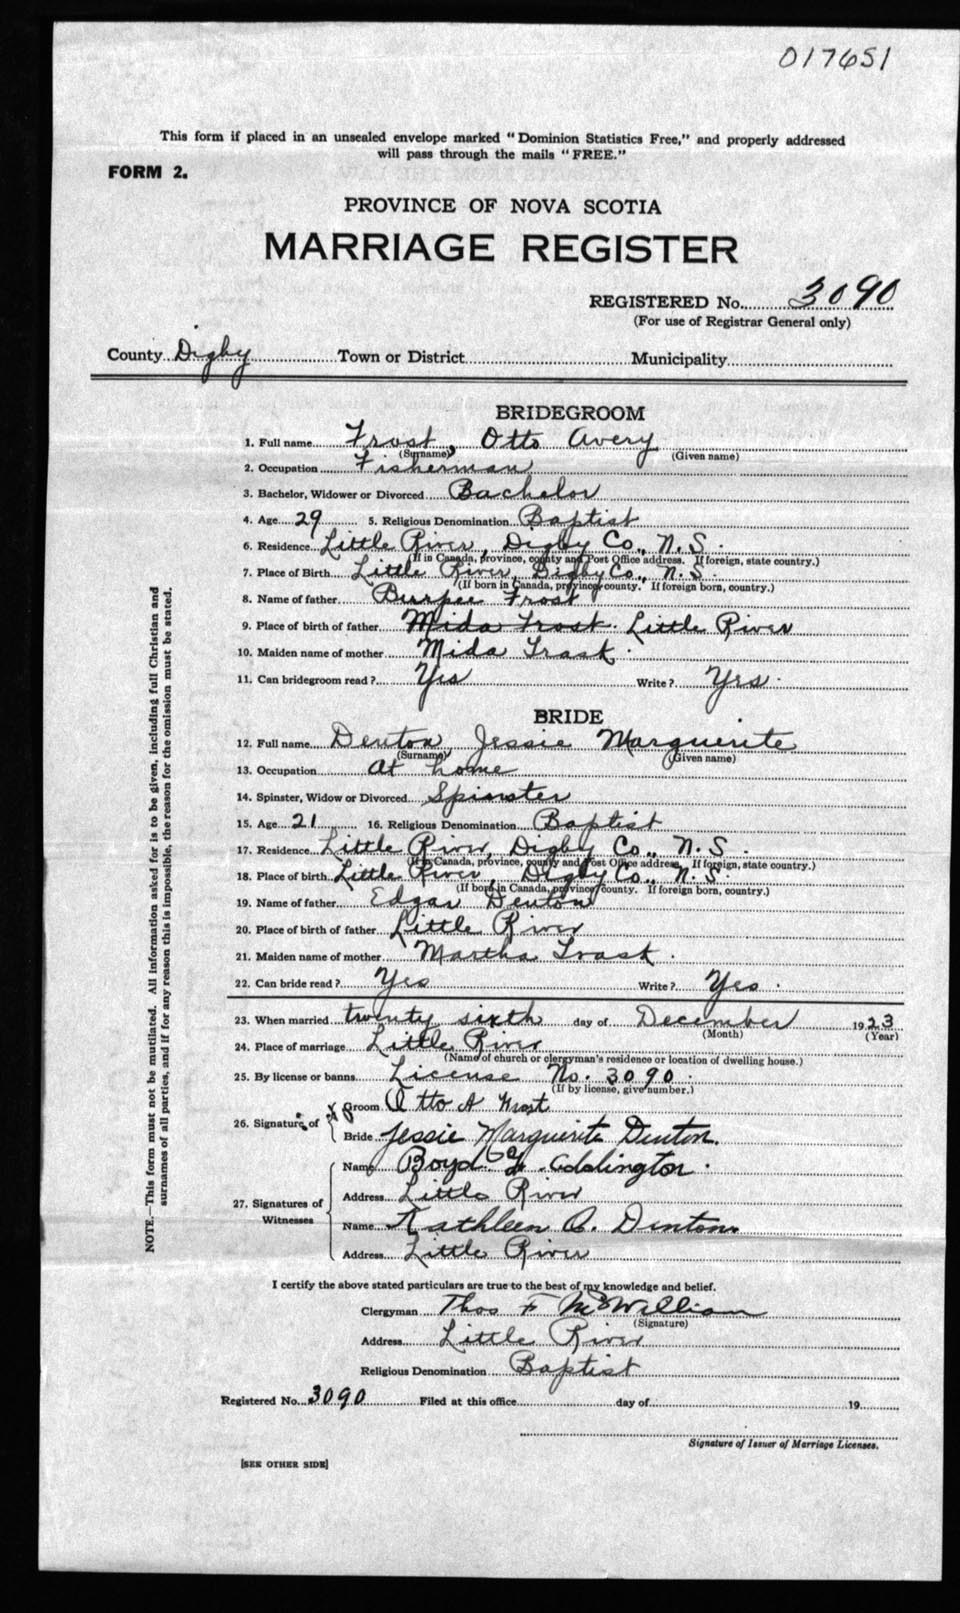 017651
This form if placed in an unsealed envelope marked "Dominion Statistics Free," and properly addressed
will pass through the mails "FREE."
FORM 2.
PROVINCE OF NOVA SCOTIA
MARRIAGE REGISTER
REGISTERED No. 3090
(For use of Registrar General only)
County Digby Town or District Municipality
BRIDEGROOM
1. Full name Frost, Otto Avery
(Surname) (Given name)
2. Occupation Fisherman
3. Bachelor, Widower or Divorced Bachelor
4. Age 29 5. Religious Denomination Baptist
6. Residence Little River, Digby Co., N.S.
(If in Canada, province, county and Post Office address. If foreign, state country.)
7. Place of Birth Little River, Digby Co., N.S.
(If born in Canada, province, county. If foreign born, country.)
8. Name of father Burpee Frost
9. Place of birth of father Mida Frost Little River
10. Maiden name of mother Mida Trask.
11. Can bridegroom read? Yes Write? Yes.
BRIDE
12. Full name Denton, Jessie Marguerite
(Surname) (Given name)
13. Occupation At home
14. Spinster, Widow or Divorced Spinster
15. Age 21 16. Religious Denomination Baptist
17. Residence Little River, Digby Co., N.S.
(If in Canada, province, county and Post Office address. If foreign, state country.)
18. Place of birth Little River, Digby Co., N.S.
(If born in Canada, province, county. If foreign born, country.)
19. Name of father Edgar Denton
20. Place of birth of father Little River
21. Maiden name of mother Martha Trask.
22. Can bride read? Yes Write? Yes.
23. When married twenty sixth day of December 1923
(Month) (Year)
24. Place of marriage Little River
(Name of church or clergyman's residence or location of dwelling house.)
25. By license or banns License No. 3090.
(If by license, give number.)
26. Signature of
Groom Otto A Frost
Bride Jessie Marguerite Denton.
27. Signatures of Witnesses
Name Boyd Addington.
Address Little River
Name Kathleen A. Denton
Address Little River
I certify the above stated particulars are true to the best of my knowledge and belief.
Clergyman Thos F McWilliam
(Signature)
Address Little River
Religious Denomination Baptist
Registered No. 3090 Filed at this office day of 19
Signature of Issuer of Marriage Licenses.
[SEE OTHER SIDE]
NOTE.—This form must not be mutilated. All information asked for is to be given, including full Christian and
surnames of all parties, and if for any reason this is impossible, the reason for the omission must be stated.